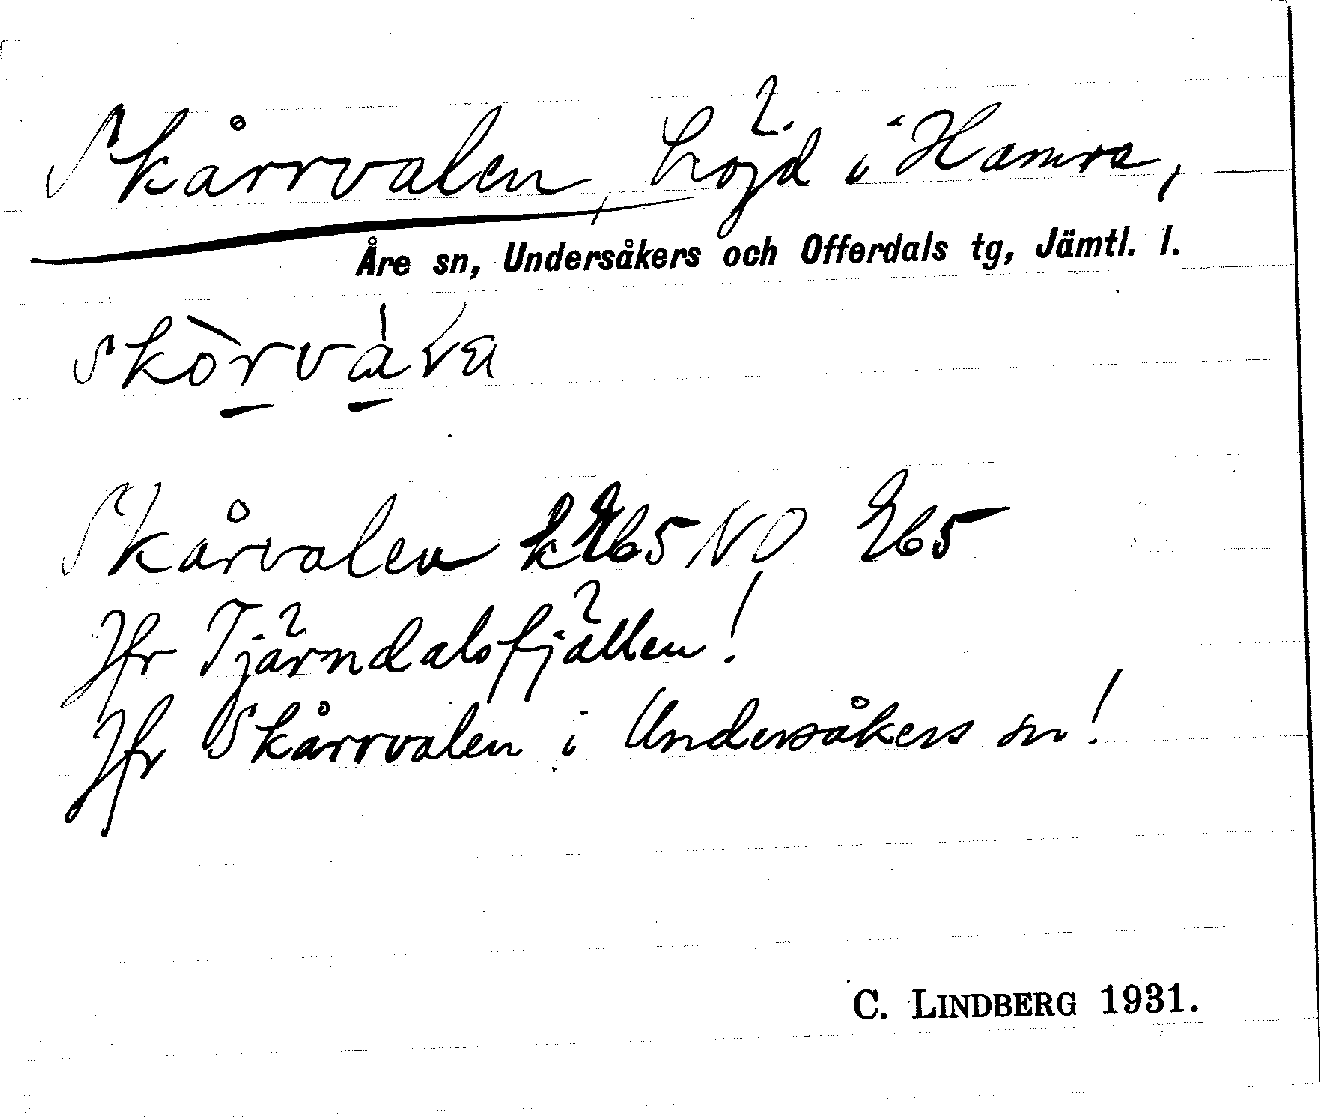 Skårrvalen, höjd i Hamra,
Åre sn, Undersåkers och Offerdals tg, Jämtl. l.
Skårvalen k E65 NO E65
Jfr Tjärndalsfjällen!
Jfr Skårrvalen i Undersåkers sn!
C. LINDBERG 1931.